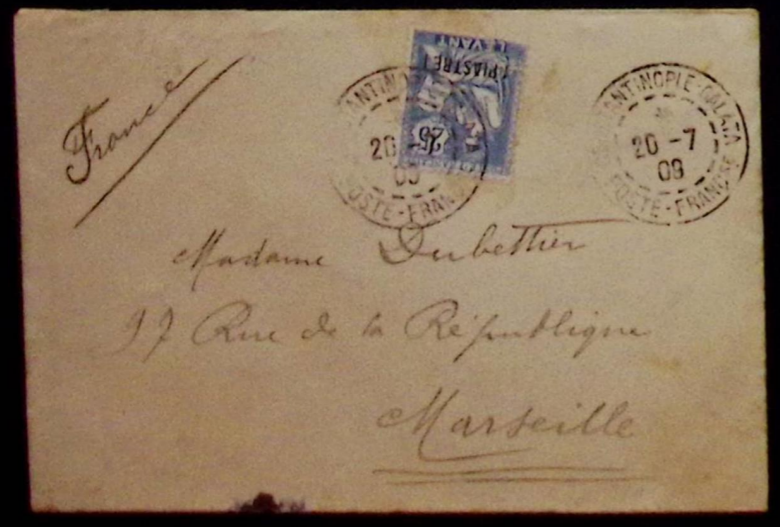 France
LEVANT
1 PIASTRE 1
25
CONSTANTINOPLE-GALATA
20 -7
09
POSTE-FRANÇSE
CONSTANTINOPLE-GALATA
20 -7
09
POSTE-FRANÇSE
Madame Dubettier
97 Rue de la République
Marseille